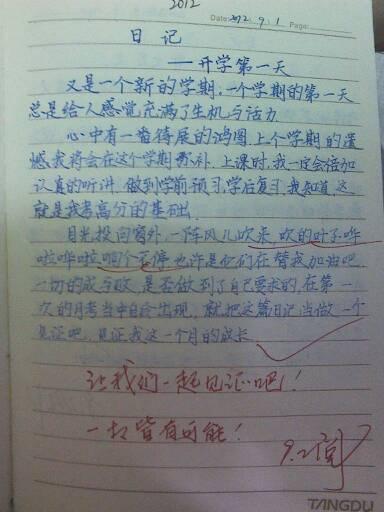 2012
Date: 2012. 9. 1 Page:
日记
——开学第一天
又是一个新的学期,一个学期的第一天
总是给人感觉充满了生机与活力
心中有一番待展的鸿图,上个学期的遗
憾我将会在这个学期弥补.上课时,我一定会倍加
认真的听讲.做到学前预习,学后复习.我知道,这
就是我考高分的基础.
目光投向窗外,一阵风儿吹来,吹的叶子哗
啦哗啦响个不停.也许是它们在替我加油吧
一切的成与败,是否做到了自己要求的,在第一
次的月考当中自会出现,就把这篇日记当做一个
见证吧,见证我这一个月的成长.
让我们一起见证吧!
一切皆有可能!
9.2阅
TANGDU